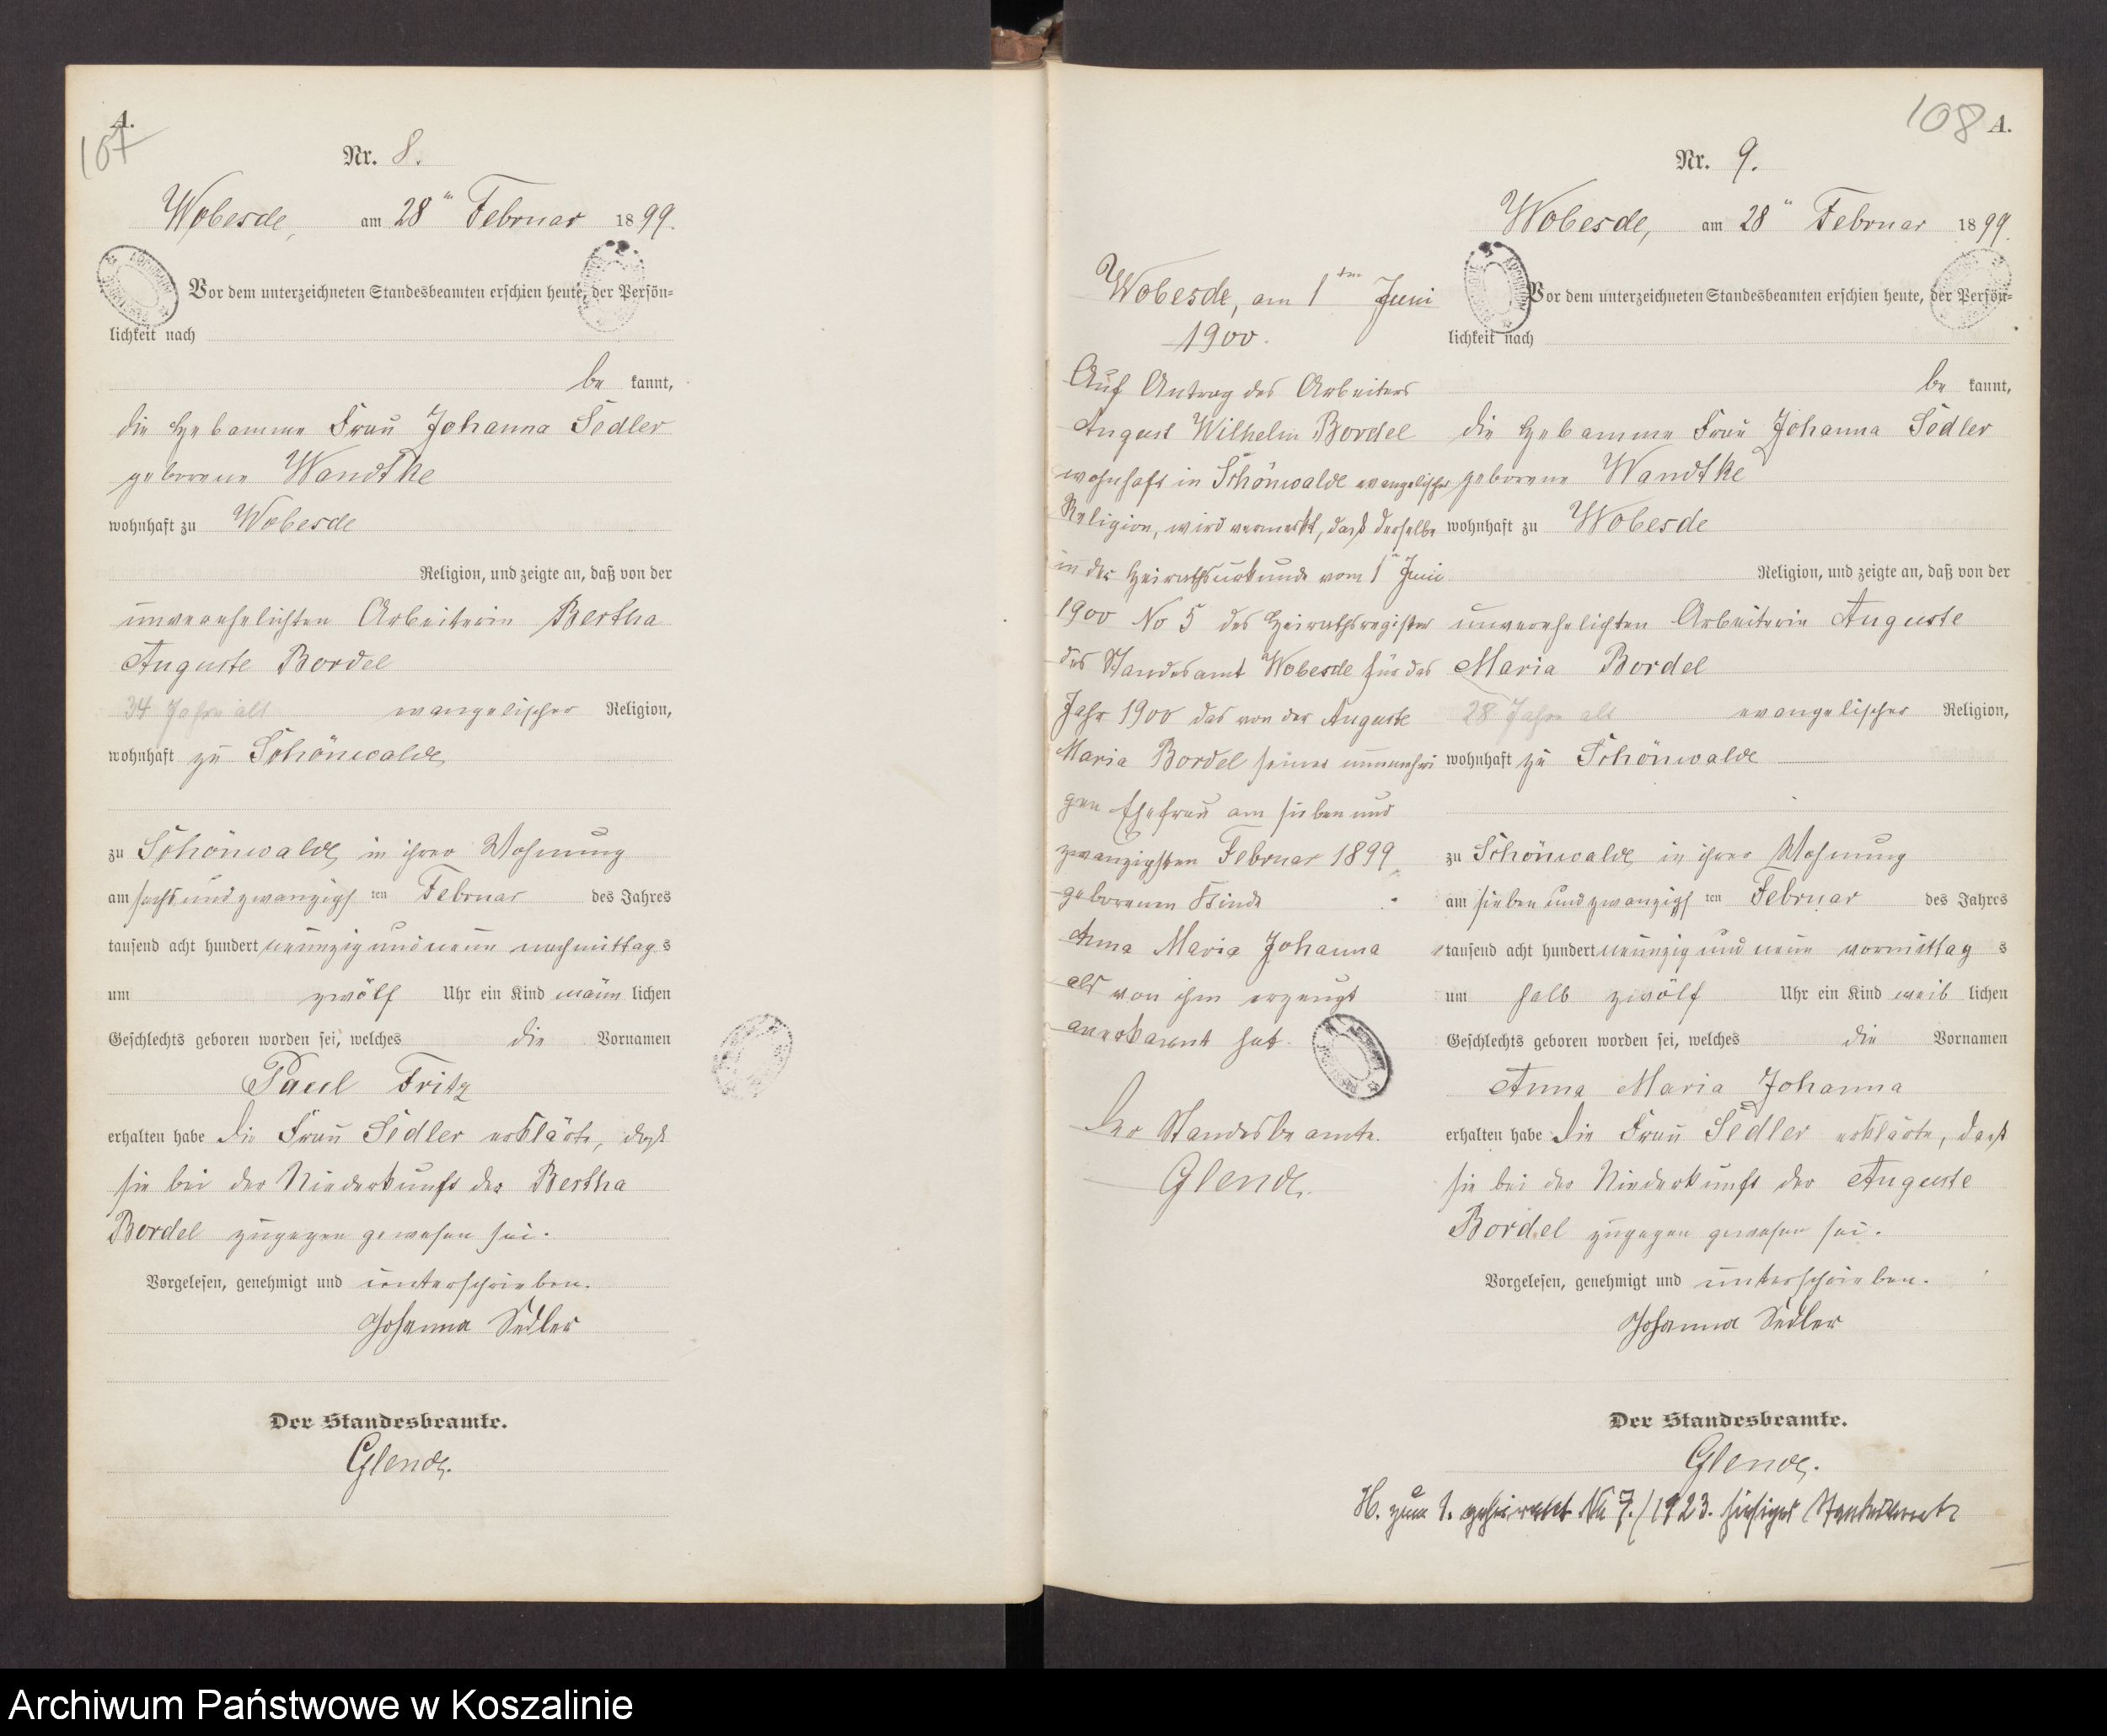 A.
107
Nr. 8.
Wobesde, am 28ten Februar 1899.
Vor dem unterzeichneten Standesbeamten erschien heute, der Persön-
lichkeit nach
be kannt,
die Hebamme Frau Johanna Sedler
geborene Wandtke
wohnhaft zu Wobesde
Religion, und zeigte an, daß von der
unverehelichten Arbeiterin Bertha
Auguste Bordel
34 Jahre alt evangelischer Religion,
wohnhaft zu Schönwalde
zu Schönwalde, in ihrer Wohnung
am sechsundzwanzigsten Februar des Jahres
tausend acht hundert neunzig und neun nachmittags
um zwölf Uhr ein Kind männlichen
Geschlechts geboren worden sei, welches die Vornamen
Paul Fritz
erhalten habe Die Frau Sedler erklärte, daß
sie bei der Niederkunft der Bertha
Bordel zugegen gewesen sei.
Vorgelesen, genehmigt und unterschrieben.
Johanna Sedler
Der Standesbeamte.
Glende.
108 A.
Nr. 9.
Wobesde, am 28ten Februar 1899.
Vor dem unterzeichneten Standesbeamten erschien heute, der Persön-
lichkeit nach
be kannt,
die Hebamme Frau Johanna Sedler
geborene Wandtke
wohnhaft zu Wobesde
Religion, und zeigte an, daß von der
unverehelichten Arbeiterin Auguste
Maria Bordel
28 Jahre alt evangelischer Religion,
wohnhaft zu Schönwalde
zu Schönwalde, in ihrer Wohnung
am siebenundzwanzigsten Februar des Jahres
tausend acht hundert neunzig und neun vormittags
um halb zwölf Uhr ein Kind weiblichen
Geschlechts geboren worden sei, welches die Vornamen
Anna Maria Johanna
erhalten habe Die Frau Sedler erklärte, daß
sie bei der Niederkunft der Auguste
Bordel zugegen gewesen sei.
Vorgelesen, genehmigt und unterschrieben.
Johanna Sedler
Der Standesbeamte.
Glende.
H. zum 1. geheiratet No 7./1923. hiesiges Standesamt
Wobesde, am 1ten Juni
1900.
Auf Antrag des Arbeiters
August Wilhelm Bordel
wohnhaft in Schönwalde evangelischer
Religion, wird vermerkt, daß derselbe
in der Heirathsurkunde vom 1ten Juni
1900 No 5 des Heirathsregister
des Standesamt Wobesde für das
Jahr 1900 das von der Auguste
Maria Bordel seiner nunmehri
gen Ehefrau am sieben und
zwanzigsten Februar 1899
geborenen Kinde
Anna Maria Johanna
als von ihm erzeugt
anerkannt hat.
Der Standesbeamte.
Glende.
Archiwum Państwowe w Koszalinie